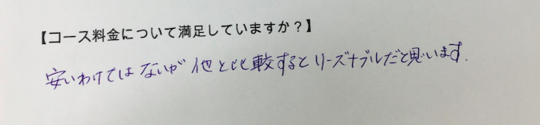 【コース料金について満足していますか？】
安いわけではないが他と比較するとリーズナブルだと思います.